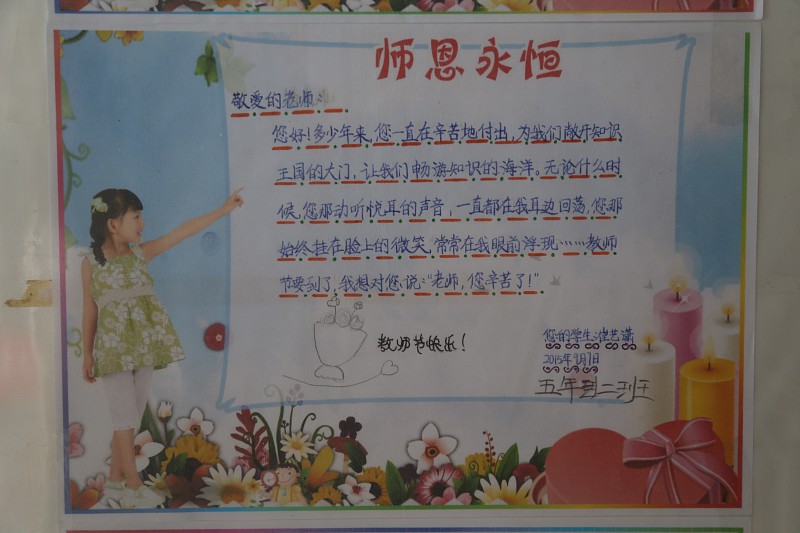 师恩永恒
敬爱的老师:
您好!多少年来,您一直在辛苦地付出,为我们敞开知识
王国的大门,让我们畅游知识的海洋。无论什么时
候,您那动听悦耳的声音,一直都在我耳边回荡,您那
始终挂在脸上的微笑,常常在我眼前浮现……教师
节要到了,我想对您说:“老师,您辛苦了!”
教师节快乐!
您的学生:崔艺潇
2015年9月7日
五年级二班